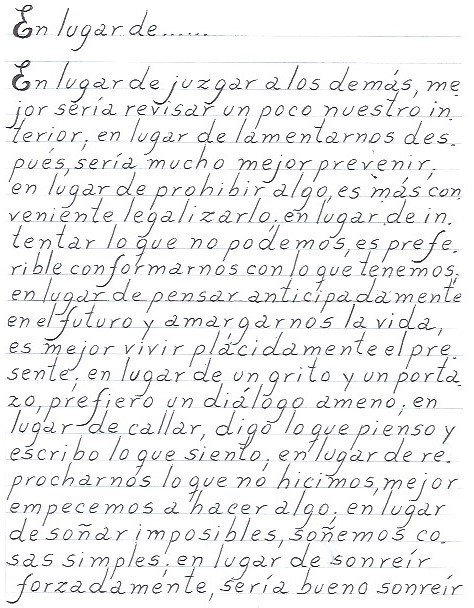 En lugar de......
En lugar de juzgar a los demás, me
jor sería revisar un poco nuestro in
terior; en lugar de lamentarnos des.
pués, sería mucho mejor prevenir;
en lugar de prohibir algo, es más con
veniente legalizarlo; en lugar de in.
tentar lo que no podemos, es prefe.
rible conformarnos con lo que tenemos;
en lugar de pensar anticipadamente
en el futuro y amargarnos la vida,
es mejor vivir plácidamente el pre.
sente; en lugar de un grito y un porta.
zo, prefiero un diálogo ameno; en
lugar de callar, digo lo que pienso y
escribo lo que siento; en lugar de re.
procharnos lo que no hicimos, mejor
empecemos a hacer algo; en lugar
de soñar imposibles, soñemos co.
sas simples; en lugar de sonreír
forzadamente, sería bueno sonreír